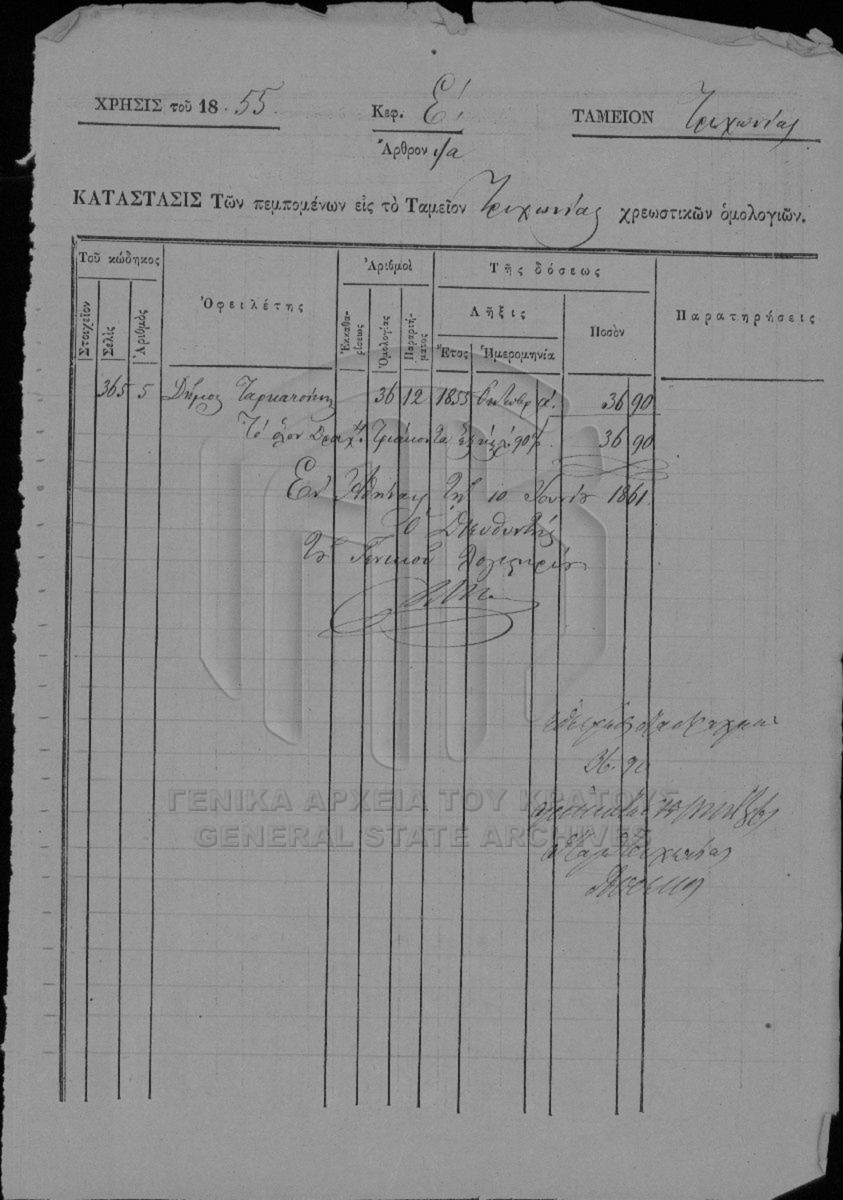 ΧΡΗΣΙΣ τοῦ 18 55
Κεφ. Ε′.
ΤΑΜΕΙΟΝ Τριχωνίας
Ἄρθρον
ΚΑΤΑΣΤΑΣΙΣ Τῶν πεμπομένων εἰς τὸ Ταμεῖον Τριχωνίας χρεωστικῶν ὁμολογιῶν.
Τοῦ κώδηκος
Στοιχεῖον
Σελὶς
Ἀριθμὸς
Ὀφειλέτης
Ἀριθμοὶ
Ἐκκαθαρίσεως
Ὁμολογίας
Παραρτήματος
Τῆς δόσεως
Λῆξις
Ἔτος
Ἡμερομηνία
Ποσὸν
Παρατηρήσεις
365 5 Δῆμος 36 12 1855 Ὀκτωβρ. α. 36 90
Τὸ ὅλον Δραχ. Τριάκοντα ἓξ 90 36 90
Ἐν Ἀθήναις τῇ 10 Ἰουνίου 1861.
Ὁ Διευθυντὴς
τοῦ Γενικοῦ Λογιστηρίου
36.90
Τριχωνίας
ΓΕΝΙΚΑ ΑΡΧΕΙΑ ΤΟΥ ΚΡΑΤΟΥΣ
GENERAL STATE ARCHIVES